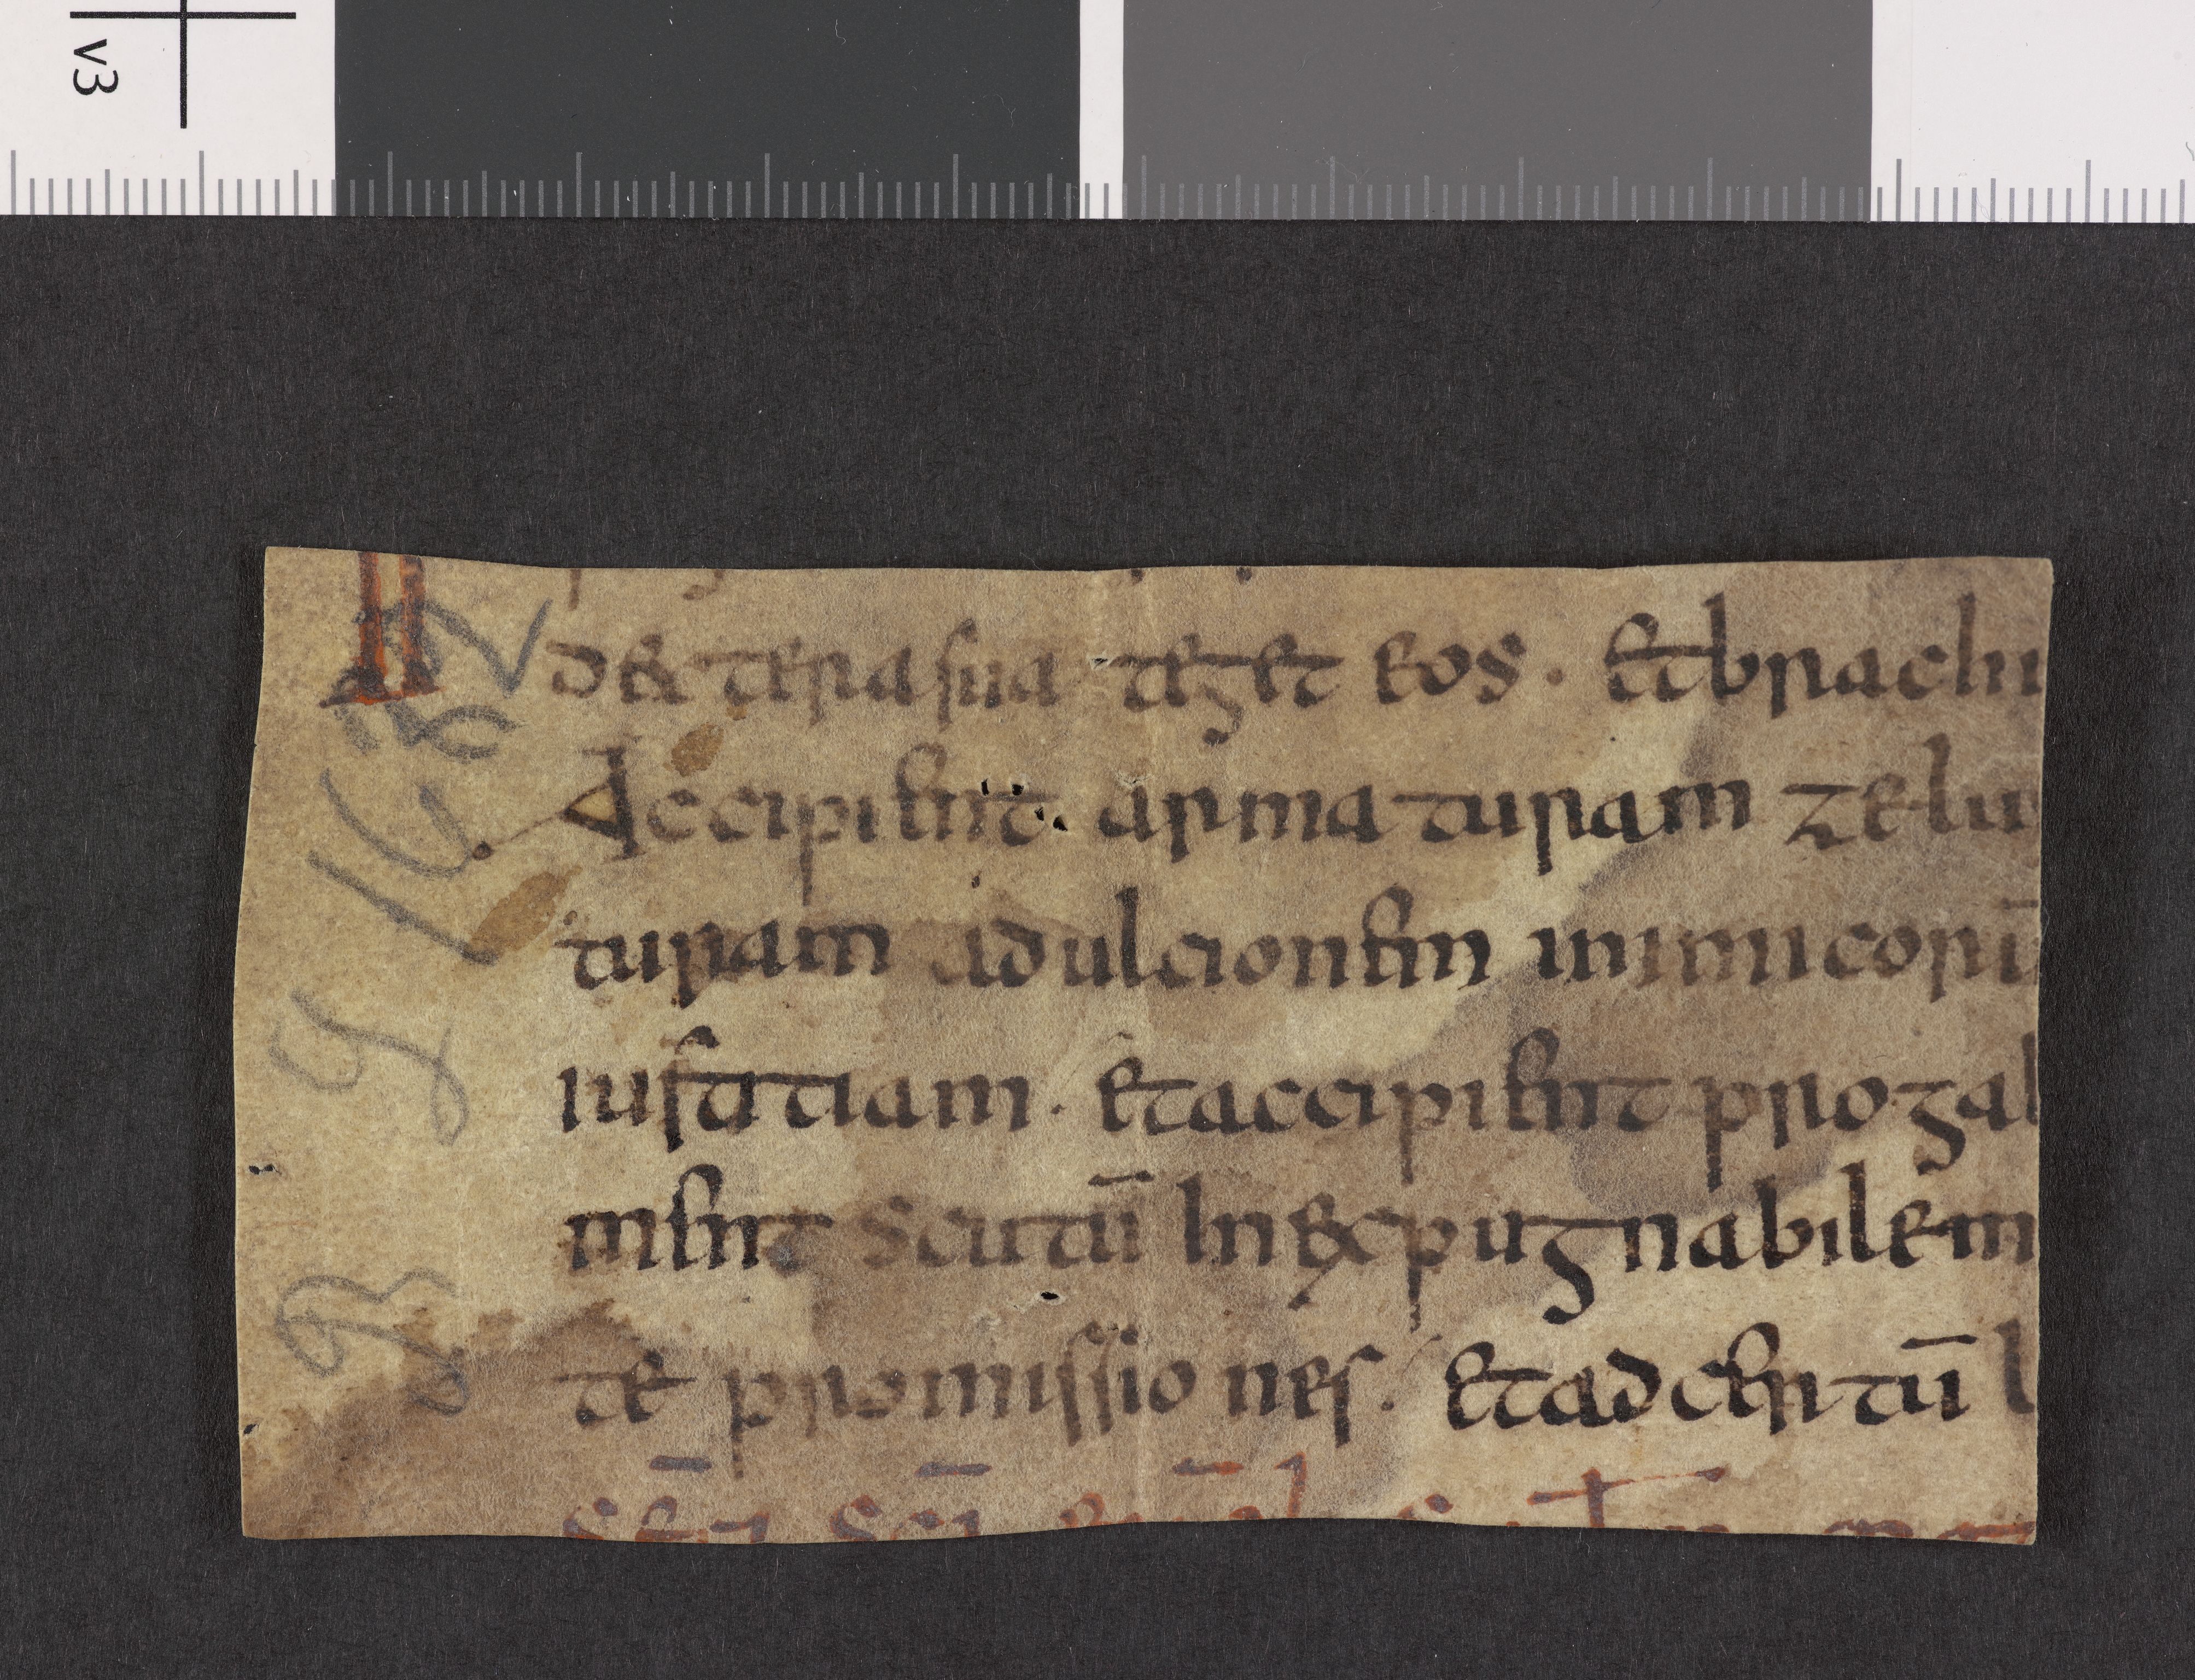 v3
dextera sua teget eos. et brachi
Accipient armaturam zelu
turam ad ulcionem inimicorū
iustitiam. et accipient pro gal
ment scutū Inexpugnabilem
te promissiones. et ad certū l